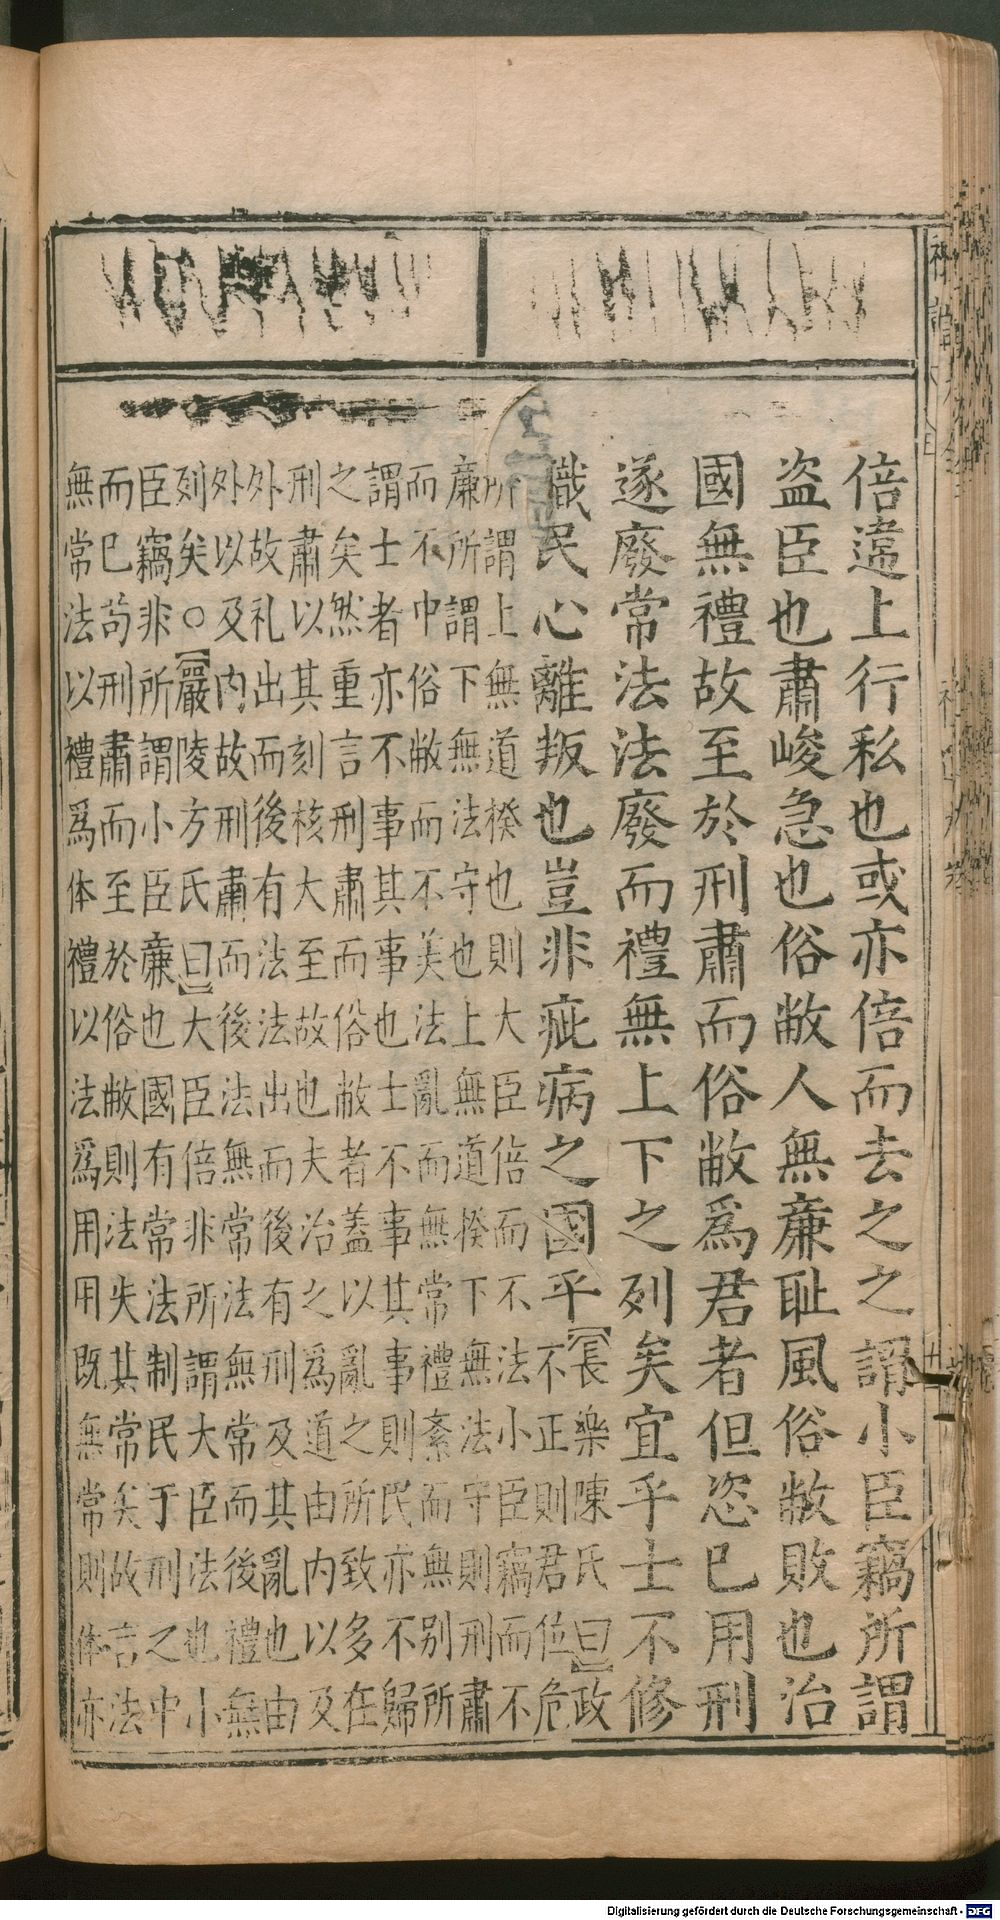 倍違上行私也或亦倍而去之之謂小臣竊所謂
盗臣也肅峻急也俗敝人無亷耻風俗敝敗也治
國無禮故至於刑肅而俗敝爲君者但恣已用刑
遂廢常法法廢而禮無上下之列矣宜乎士不修
職民心離叛也豈非疵病之國乎
【長樂陳氏曰】政
不正則君位危
所謂上無道揆也則大臣倍而不法小臣竊而不
亷所謂下無法守也上無道揆下無法守則刑肅
而不中俗敝而不美法亂而無常禮紊而無别所
謂士者亦不事其事也士不事其事則民亦不歸
之矣然重言刑肅而俗敝者蓋以亂之所致多在
刑肅以其刻核大至故也夫治之爲道由内以及
外故礼出而後有法法出而後有刑及其亂也由
外以及内故刑肅而後法無常法無常而後禮無
列矣○【嚴陵方氏曰】大臣倍非所謂大臣法也小
臣竊非所謂小臣亷也國有常法制民于刑之中
而已苟刑肅而至於俗敝則法失其常矣故言法
無常法以禮爲体禮以法爲用用既無常則体亦
Digitalisierung gefördert durch die Deutsche Forschungsgemeinschaft - DFG